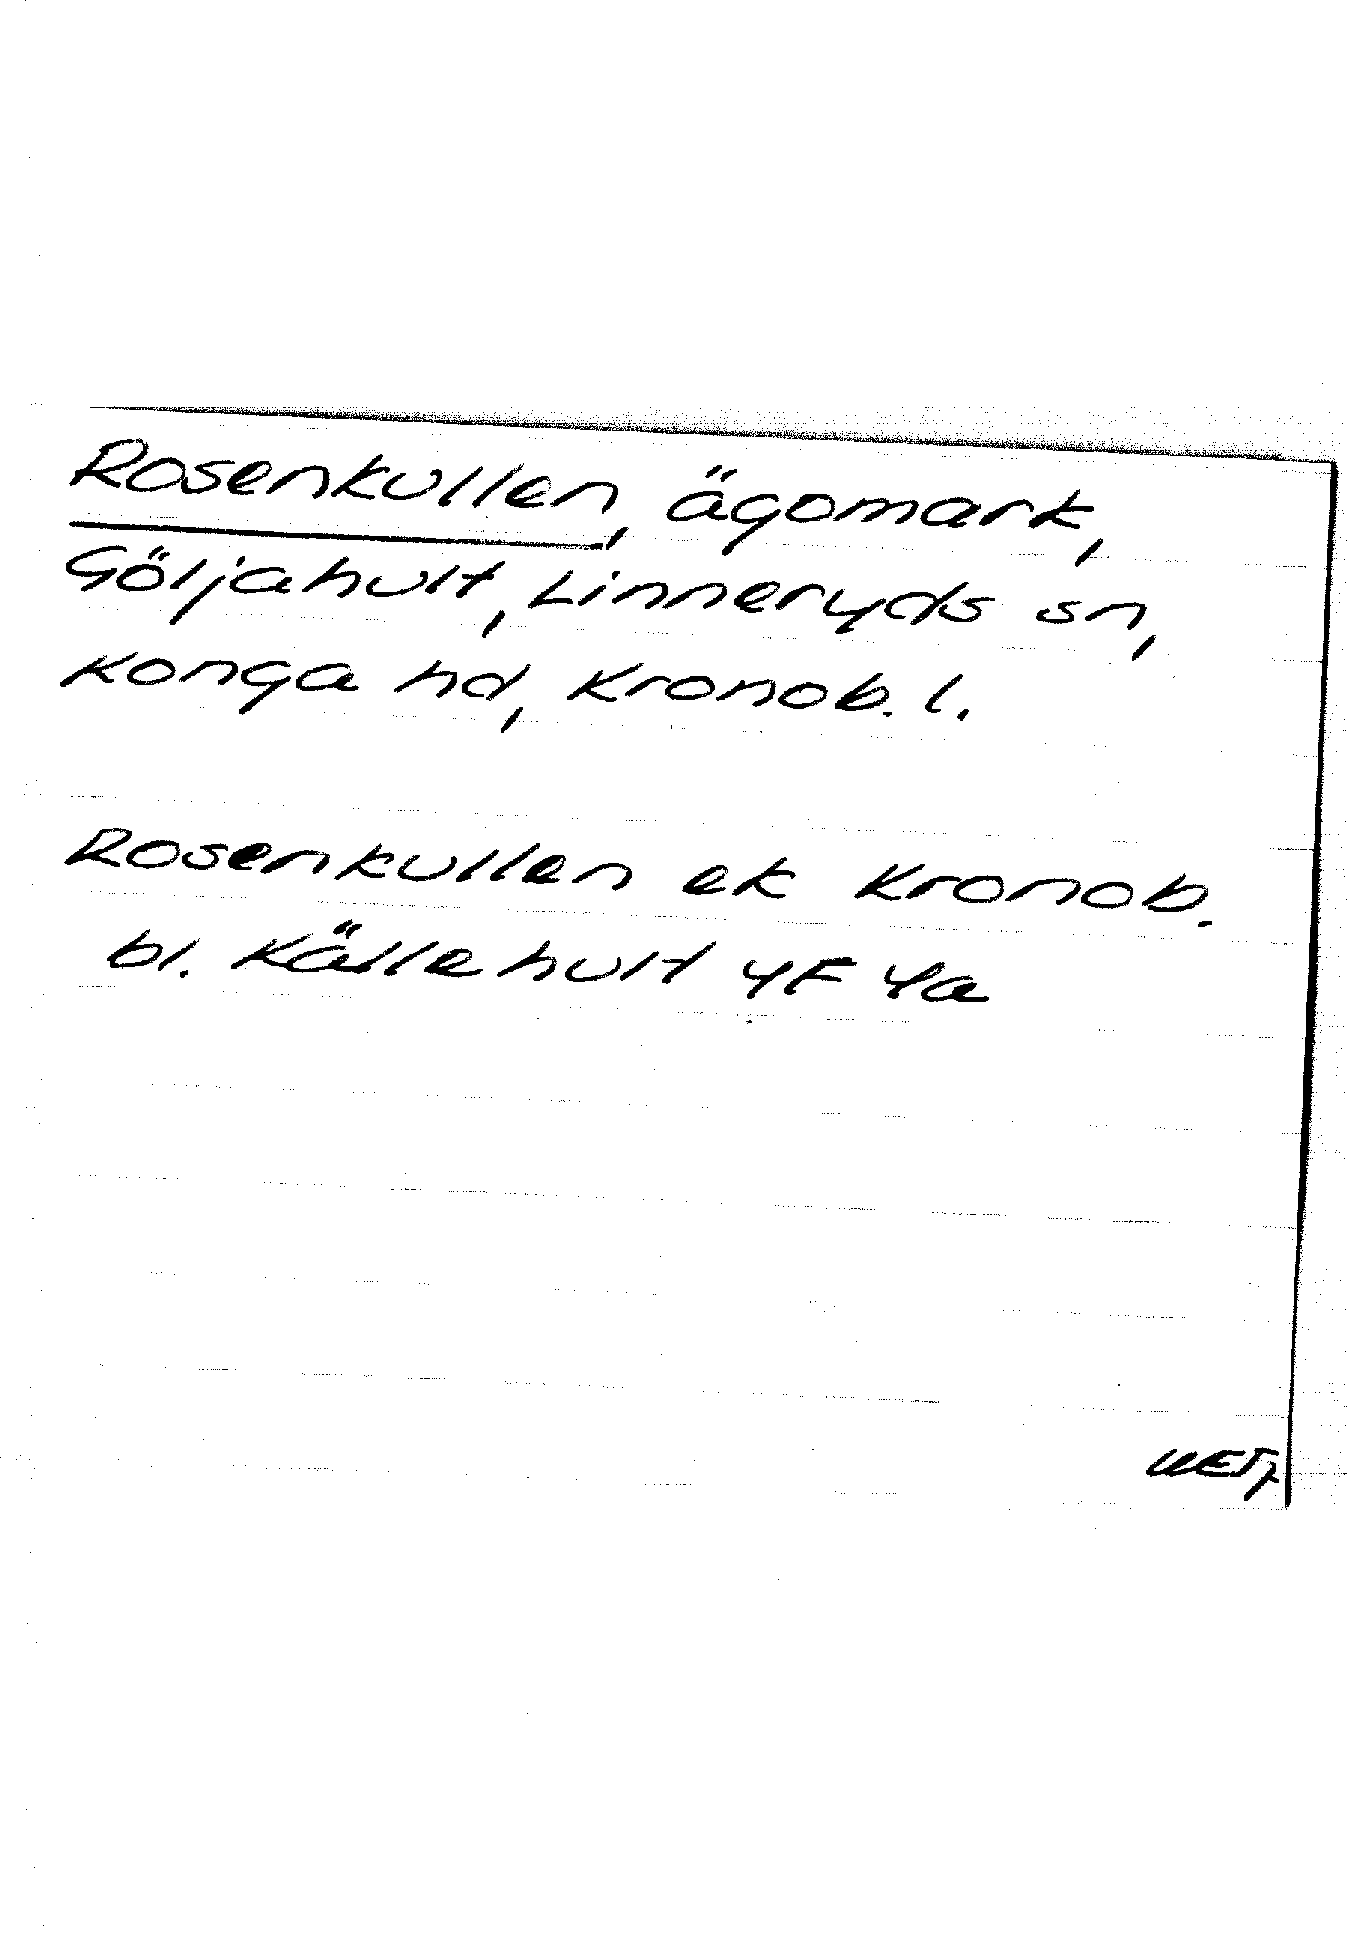 Rosenkullen, ägomark,
Göljahult, Linneryds sn,
Konga hd, Kronob. l.
Rosenkullen ek Kronob.
bl. Källehult 4F 4a